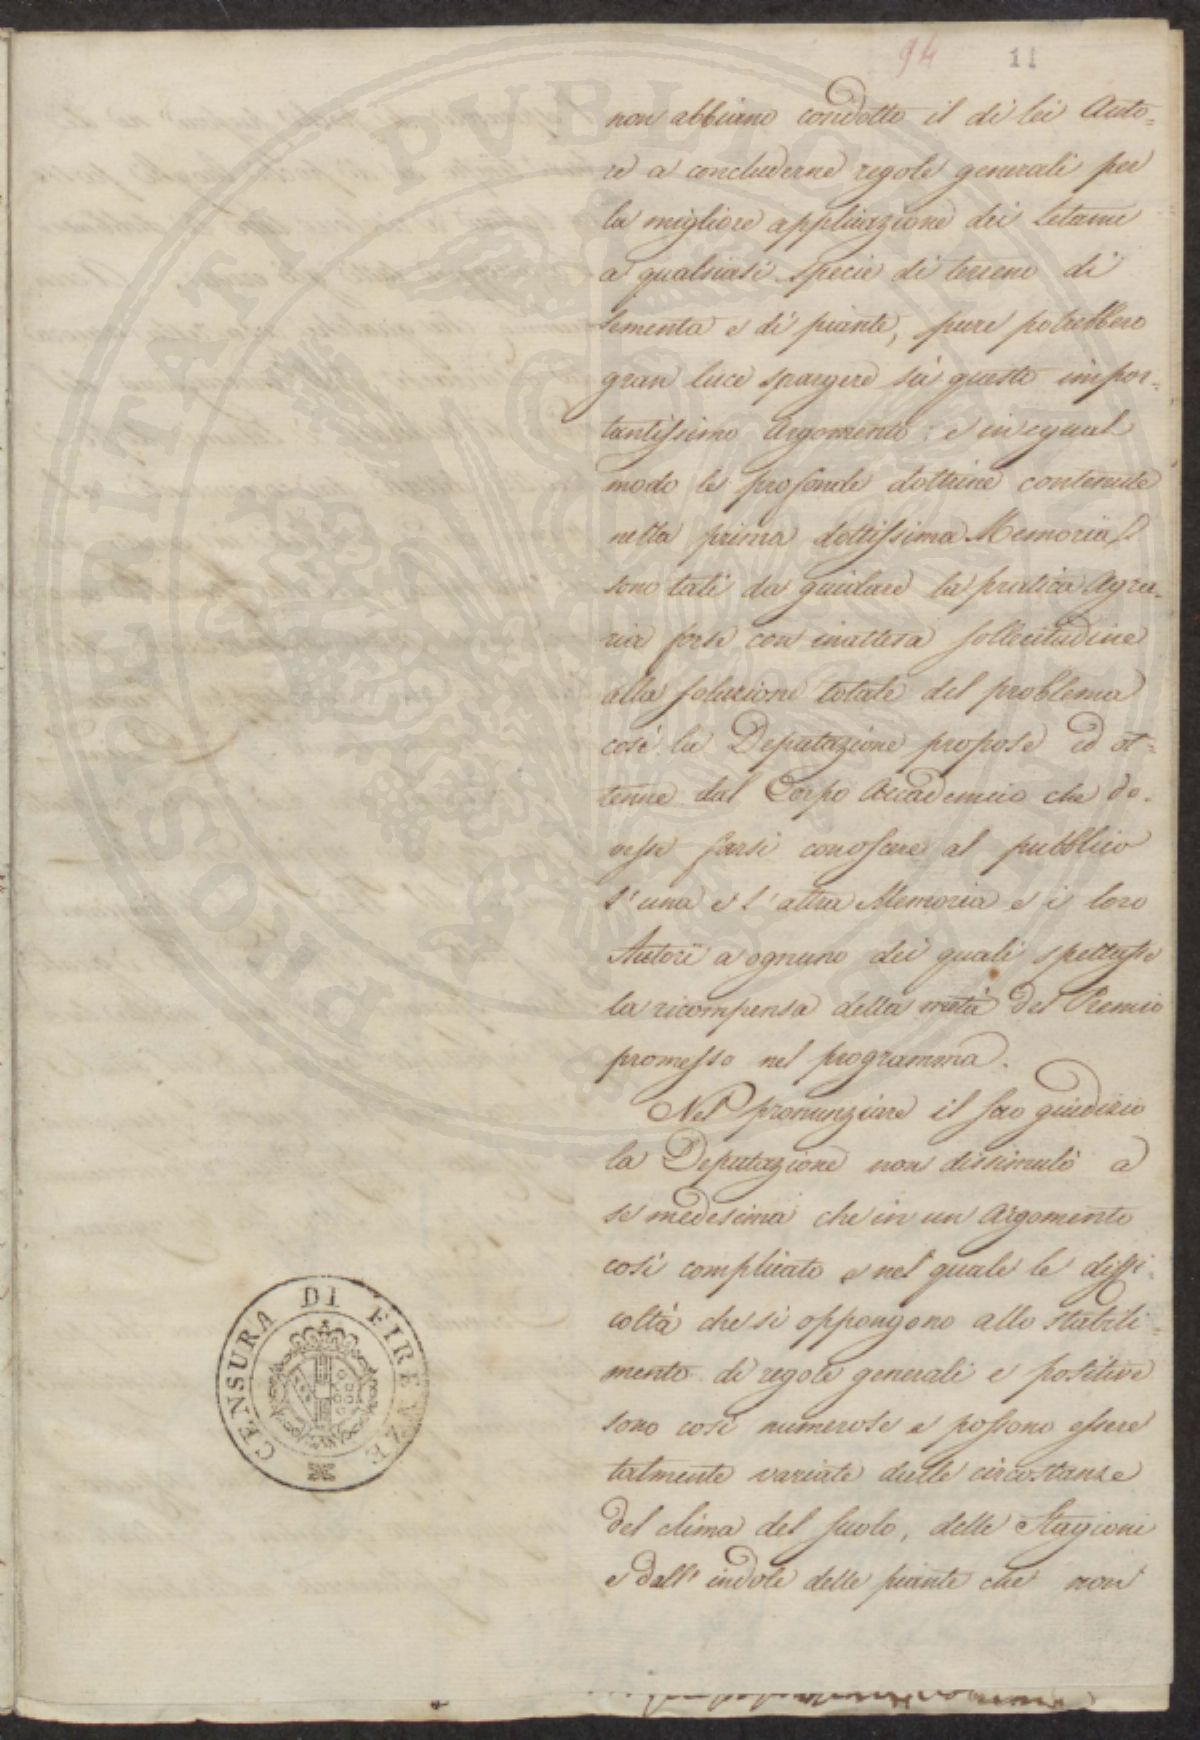 94 11
non abbiano condotto il di lei Auto=
re a concluderne regole generali per
la migliore applicazione dei letami
a qualsiasi specie di terreno di
sementa e di piante, pure potrebbero
gran luce spargere sù questo impor=
tantissimo Argomento; e in egual
modo le profonde dottrine contenute
nella prima dottissima Memoria,
sono tali da guidare la pratica Agra=
ria forse con inattesa sollecitudine
alla soluzione totale del problema
così la Deputazione propose ed ot=
tenne dal Corpo Accademico che do=
vesse farsi conoscere al pubblico
l'una e l'altra Memoria e i loro
Autori a ognuno dei quali spettasse
la ricompensa della metà del Premio
promesso nel programma.
Nel pronunziare il suo giudizio
la Deputazione non dissimulò a
se medesima che in un Argomento
così complicato e nel quale le diffi=
coltà che si oppongono allo stabili=
mento di regole generali e positive
sono così numerose e possono essere
talmente variate dalle circostanze
del clima del suolo, delle Stagioni
e dall'indole delle piante che non
CENSURA DI FIRENZE
PROSPERITATI PVBLICAE